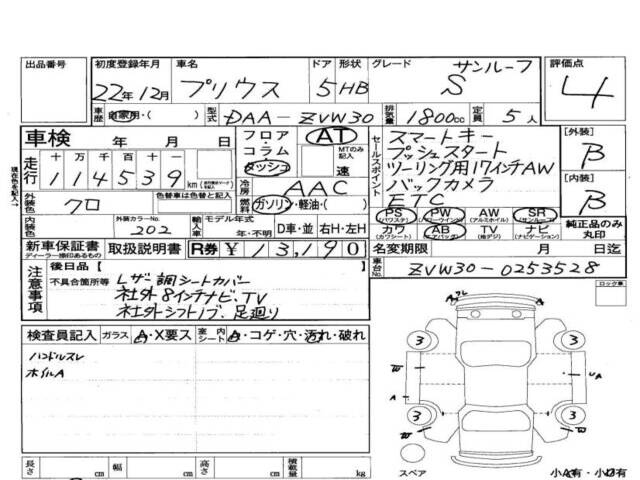 出品番号 初度登録年月 車名 ドア 形状 グレード サンルーフ 評価点
22年12月 プリウス 5 HB S 4
車歴 自家用・( ) 型式 DAA-ZVW30 排気量 1800cc 定員 5人
車検 年 月 日
フロア AT
コラム MTのみ記入
ダッシュ 速
セールスポイント
スマートキー
プッシュスタート
ツーリング用17インチAW
バックカメラ
ETC
[外装] B
[内装] B
純正品のみ丸印
走行 十 万 千 百 十 一
114539 km
冷房 AAC
燃料 ガソリン・軽油・( )
外装色 クロ 色替車は色替前色
内装色 外装カラーNo. 202
輸入車 モデル年式 年・不明 D車・並 右H・左H
PS (パワステ) PW (パワーウインド) AW (アルミホイル) SR (サンルーフ)
カワ (カワシート) AB (エアバッグ) TV (純デジ) ナビ (ナビゲーション)
新車保証書 取扱説明書 R券 ¥13,190
ディーラー捺印あるもの
名変期限 月 日迄
車台No. ZVW30-0253528
注意事項 後日品【 】
不具合箇所等 レザー調シートカバー
社外8インチナビ、TV
社外シフトノブ、足廻り
ロック車
検査員記入 ガラス A・X要ス 室内シート A・コゲ・穴・汚れ・破れ
ハンドルスレ
ホイルA
A
3 3
W W
A U A
3 3
スペア
小A有・小凹有
長さ cm 幅 cm 高さ cm 積載量 kg